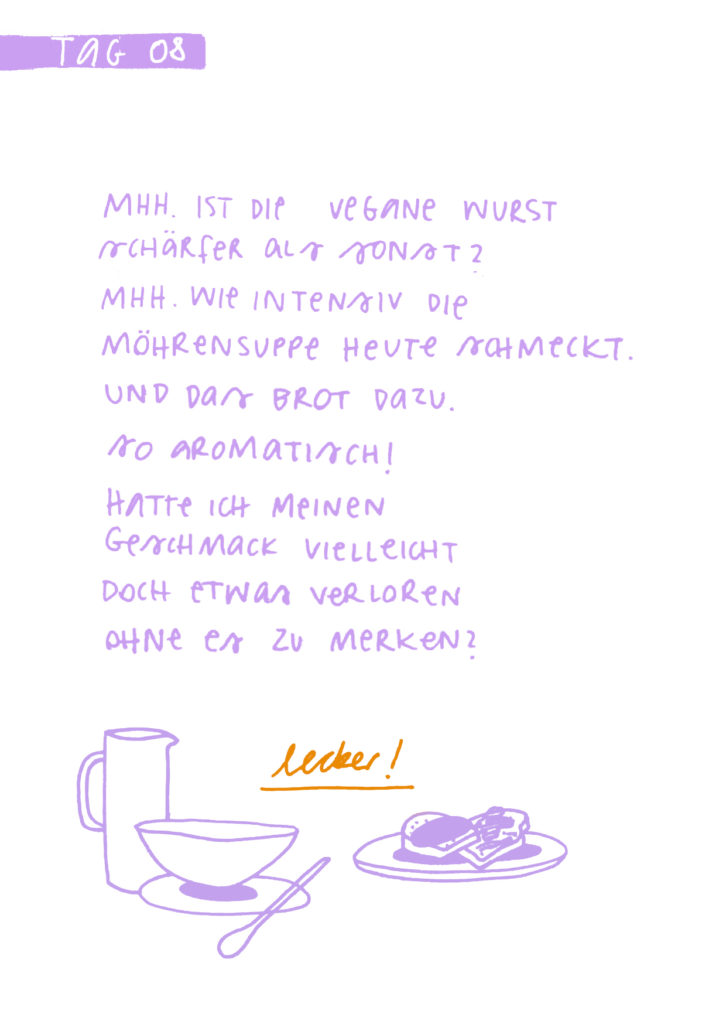 TAG 08
MHH. IST DIE VEGANE WURST
SCHÄRFER ALS SONST?
MHH. WIE INTENSIV DIE
MÖHRENSUPPE HEUTE SCHMECKT.
UND DAS BROT DAZU.
SO AROMATISCH!
HATTE ICH MEINEN
GESCHMACK VIELLEICHT
DOCH ETWAS VERLOREN
OHNE ES ZU MERKEN?
lecker!